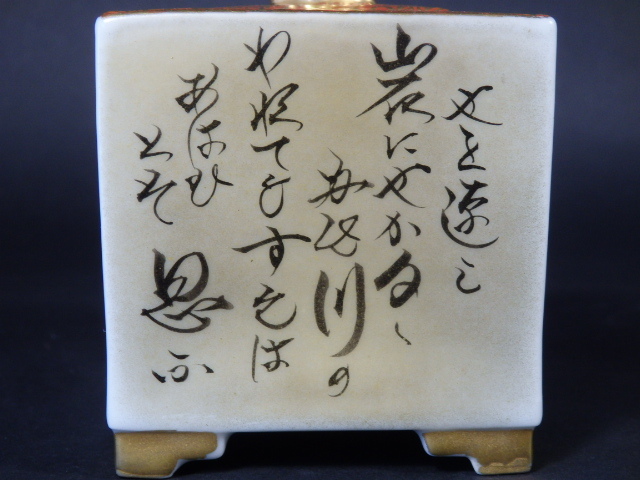 せを速み
岩にせかるゝ
川の
われてもすゑは
あはむ
とそ
思ふ